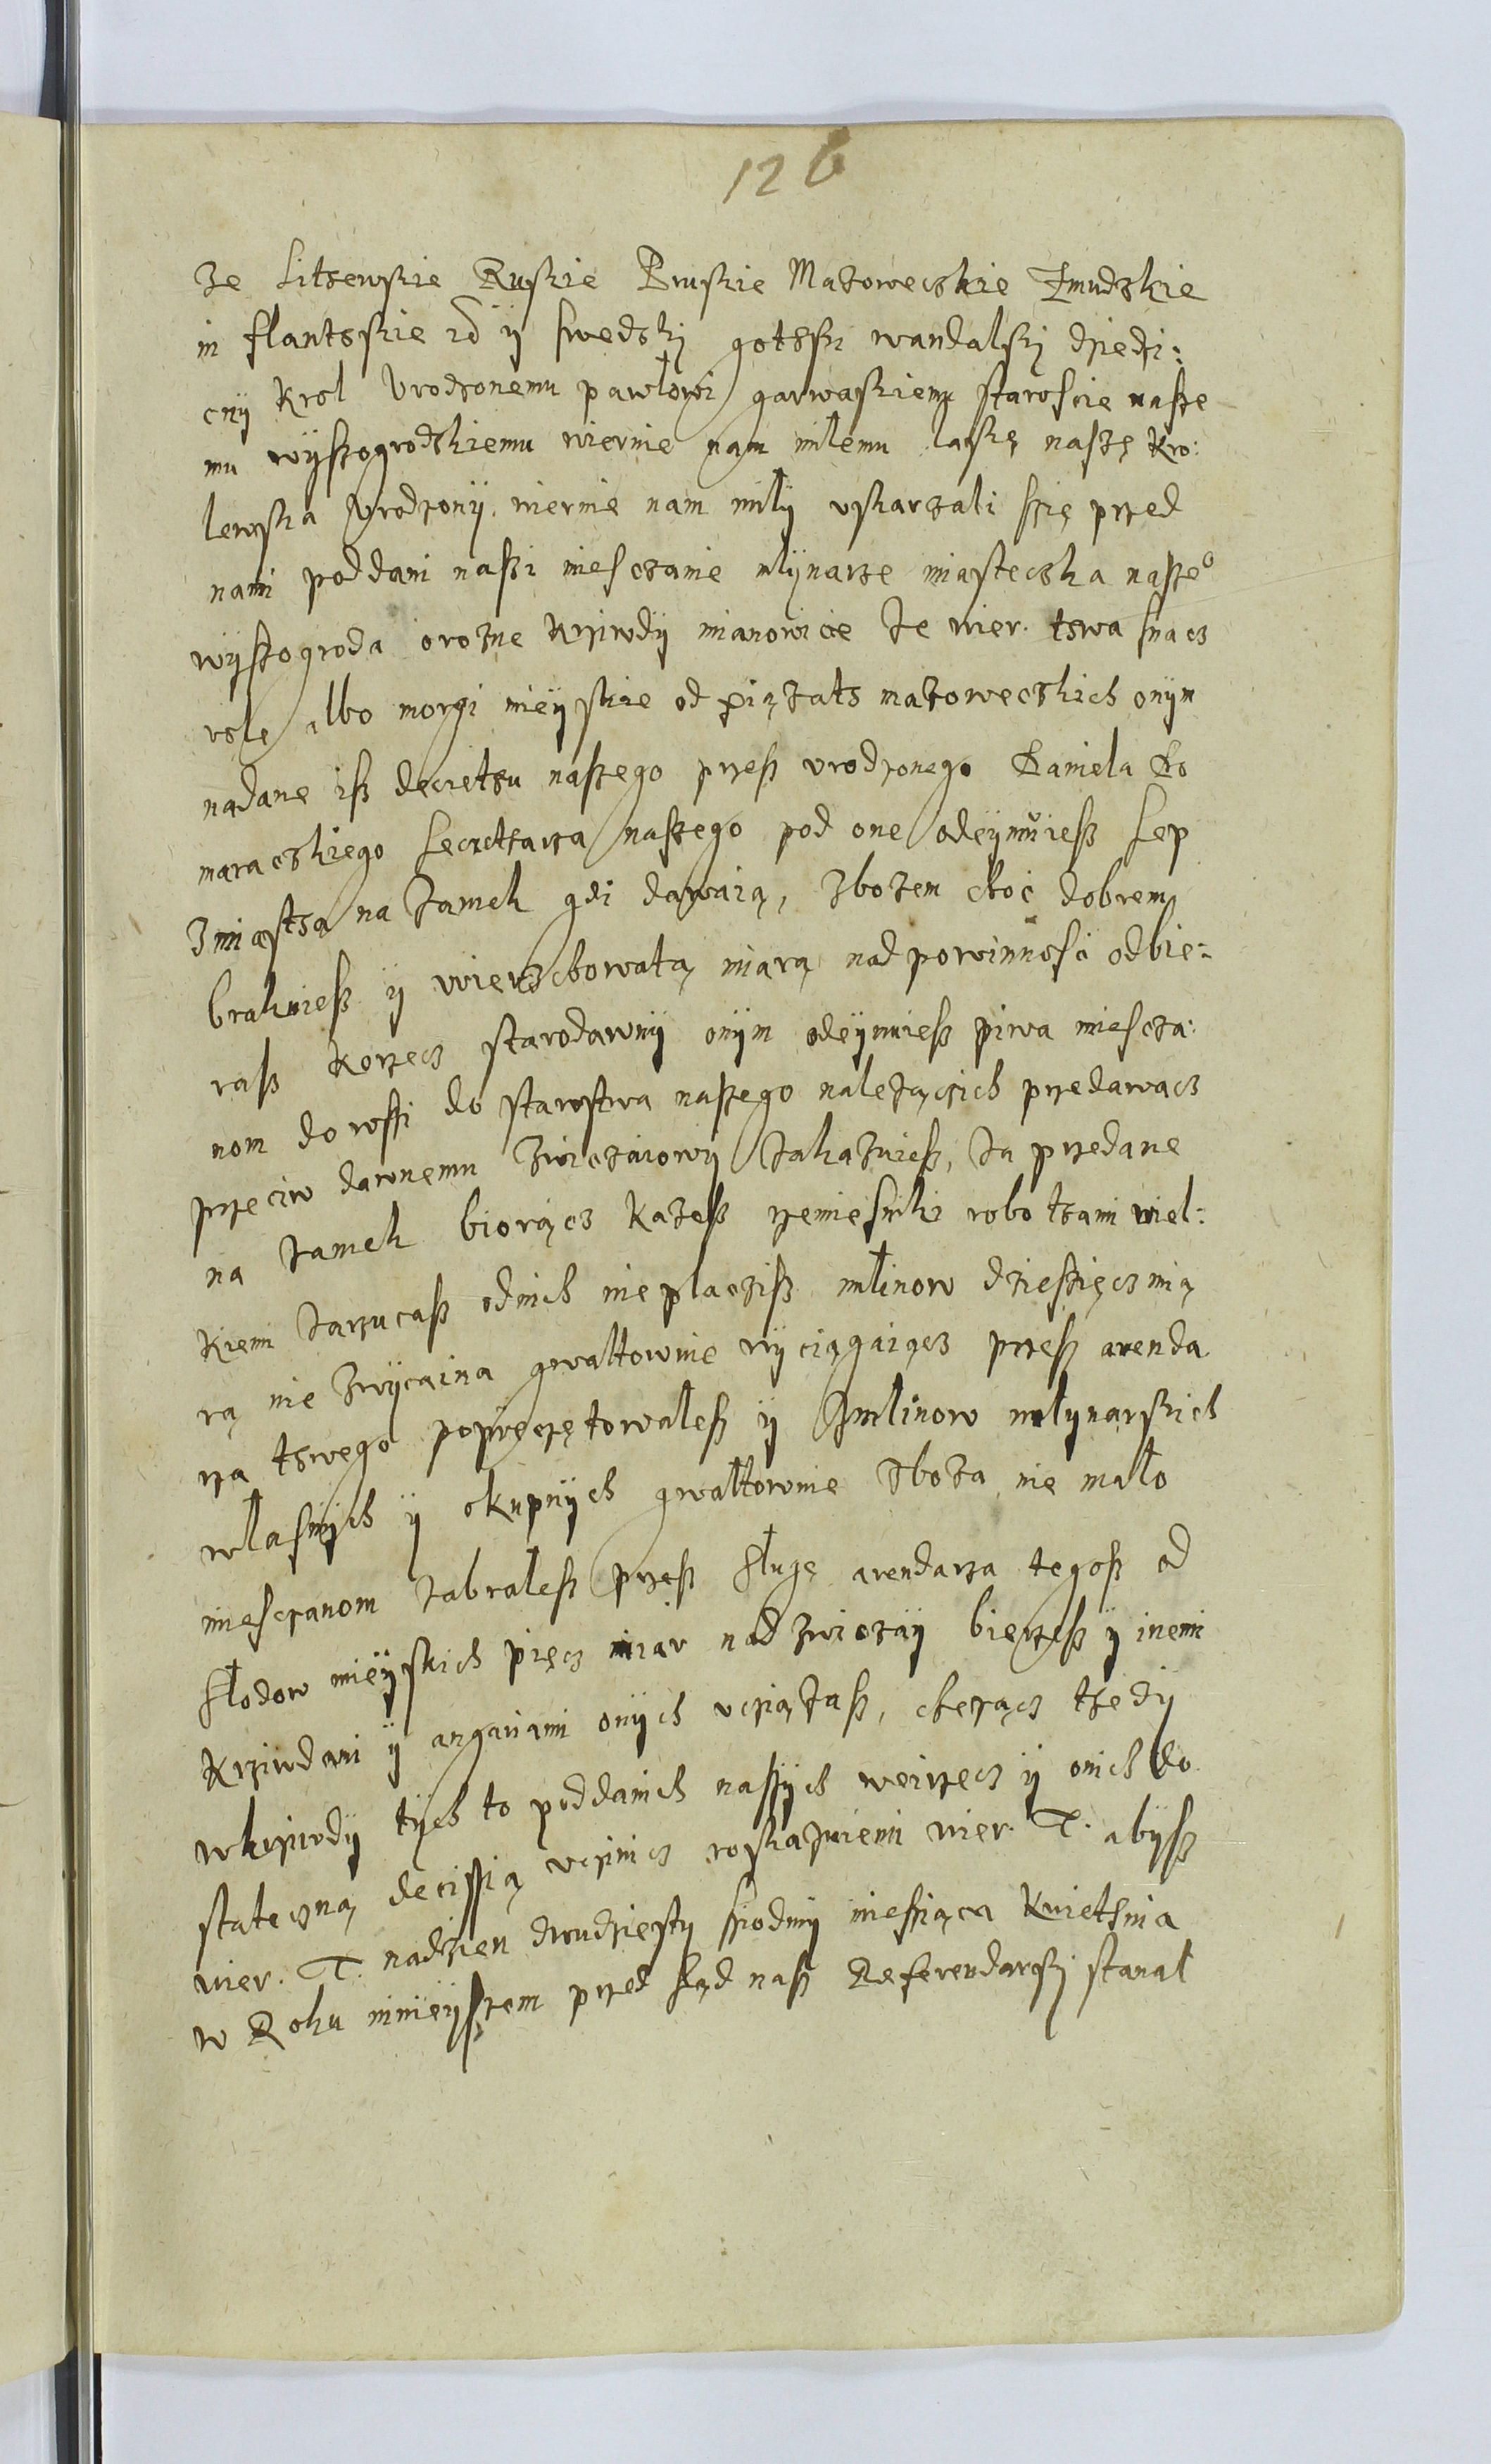 126
ze Litewskie Ruskie Pruskie Mazoweczkie Zmudzkie
in flantskie id ÿ swedzkj gotski wandalskj dziedzi:
cnÿ Krol Vrodzonemu pawłowi garwaskiemu staroście nasze
mu wÿszogrodzkiemu wiernie nam miłemu łaskę naszę Kro:
lewska Vrodzonÿ, wiernie nam miłÿ vskarzali szię przed
nami poddani naszi miesczanie mlÿnarze miasteczka nasze⁰
wÿszogroda orozne krziwdÿ mianowicie ze wier. twa snacz
role albo morgi mieÿskie od xiązats mazoweczkich onÿm
nadane isz decretsu naszego przesz vrodzonego Daniela Do
maraczkiego Secretsarza naszego pod one odeÿmuiesz Sep
zmiastsa na zamek gdi dawaią, zbozem choć dobrem
brakuiesz ÿ wierzchowatą miarą nad powinność odbie:
rasz korzecz starodawnÿ onÿm odeÿmuiesz piwa miescza:
nom do wsi do starostwa naszego należączich przedawacz
przeciw dawnemu zwiczaiowÿ zakazuiesz, za przedane
na zamek biorącz kazesz rzemiesniki robotsami wiel:
kiemi zarzucasz odnich nie placzisz mlinow dziesięcz mią
rą nie zwÿcaina gwałtownie wÿciągaiącz przesz arenda
rza tswego poprzętowalesz ÿ zmlinow mlynarskich
własnÿch ÿ okupnÿch gwałtownie zboza nie mało
miesczanom zabralesz przesz sługę arendarza tegosz od
słodow mieÿskich pięcz miar nad zwiczaÿ bierzesz ÿ inemi
krziwdami ÿ angariami onÿch vcziązasz, chcącz tsedÿ
wkrziwdÿ tÿch to poddanich naszÿch weirzecz ÿ onich do
stateczną deciszią vczinicz roskazuiemi wier. T. abÿsz
wier. T. nadzien dwudziestÿ siodmÿ miesiąca Kwietsnia
w Roku ninieÿszem przed Sąd nasz Referendarskj stanał